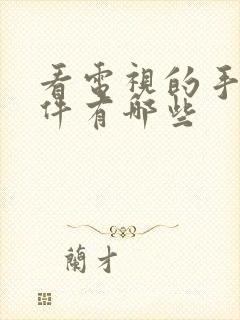 看電視的手
件有哪些
蘭才